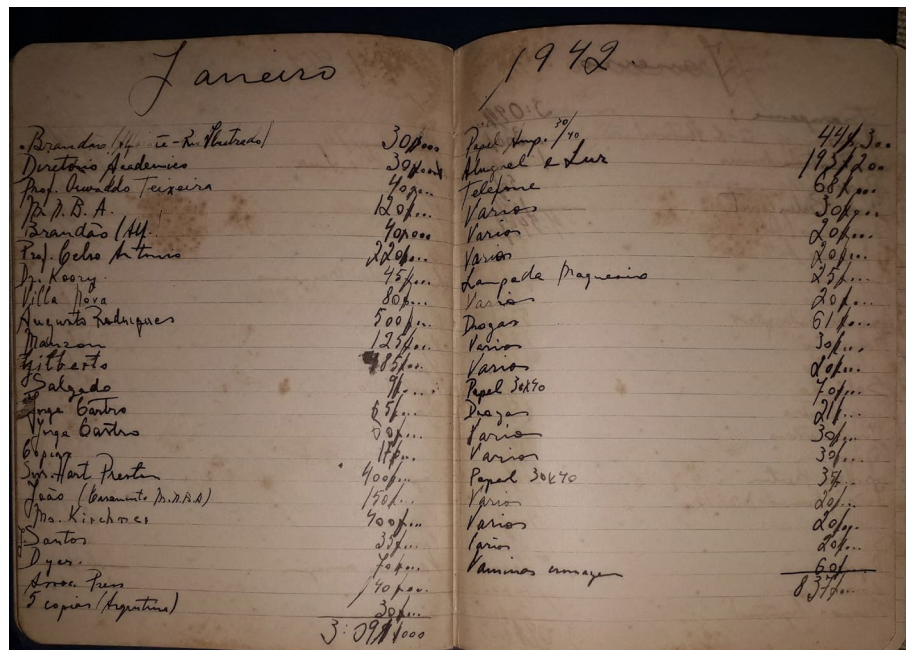 Janeiro
Brandão 30$000
Diretorio Academico 30$000
Prof. Oswaldo Teixeira 40$000
M.N.B.A. 120$...
Brandão 40$000
Prof. Celso Antonio 220$...
Dr. Koory 45$...
Villa Nova 80$...
Augusto Rodrigues 500$...
Manzon 125$...
Gilberto
Salgado
Jorge Castro 65$...
Jorge Castro
Copias
Hart Preston 400$...
João (Casamento M.N.B.A) 150$...
Kirchner 400$...
Santos 35$...
Dyer. 70$...
Press 140$...
5 copias (Argentina) 30$...
1942
Papel Amp. 30/40 44$3..
Aluguel e Luz 195$2..
Telefone 68$...
Varios 30$...
Varios 20$...
Varios 20$...
Lampada Magnesio 25$...
Varios 20$...
Drogas 61$...
Varios 30$...
Varios 20$...
Papel 30x40 70$...
Drogas 21$...
Varios 30$...
Varios 30$...
Papel 30x40
Varios 20$...
Varios 20$...
Varios 20$...
60$...
837$...